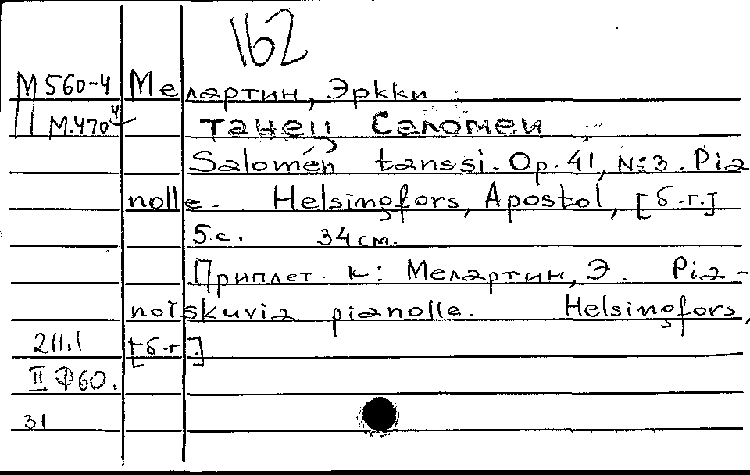 162
М 560-4 Мелартин, Эркки
М.470 Танец Саломеи
Salomén tanssi. Op. 41, №3. Pia
nolle. Helsingfors, Apostol, [б.г.]
5 с. 34 см.
Приплет. к: Мелартин, Э. Pia-
noiskuvia pianolle. Helsingfors,
211.1 [б.г.]
II Ф60.
31